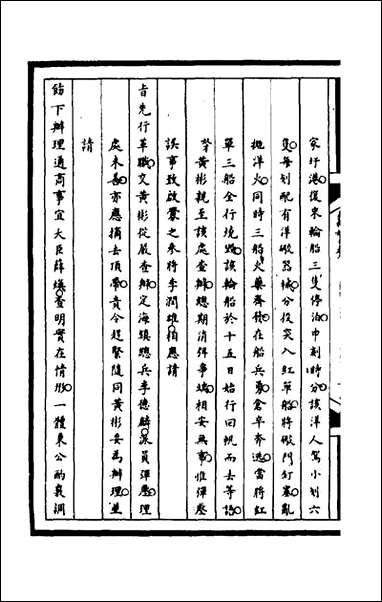 家圩港復來輪船三隻停泊申刻時分該洋人駕小划六
隻每划配有洋礮器械分投突入紅單船將礮門釘塞亂
拋洋火同時三船火藥齊發在船兵勇倉卒奔逃當將紅
單三船全行燒燬該輪船於十五日始行回帆而去等語
黃彬親至該處查辦總期消弭爭端相安無事惟彈壓
誤事致啟釁之參將李潤雄相應請
旨先行革職交黃彬從嚴查辦定海鎮總兵李德麟派員彈壓理
處未善亦應摘去頂帶責令趕緊隨同黃彬妥為辦理並
請
飭下辦理通商事宜大臣薛煥查明實在情形一體秉公酌裹調